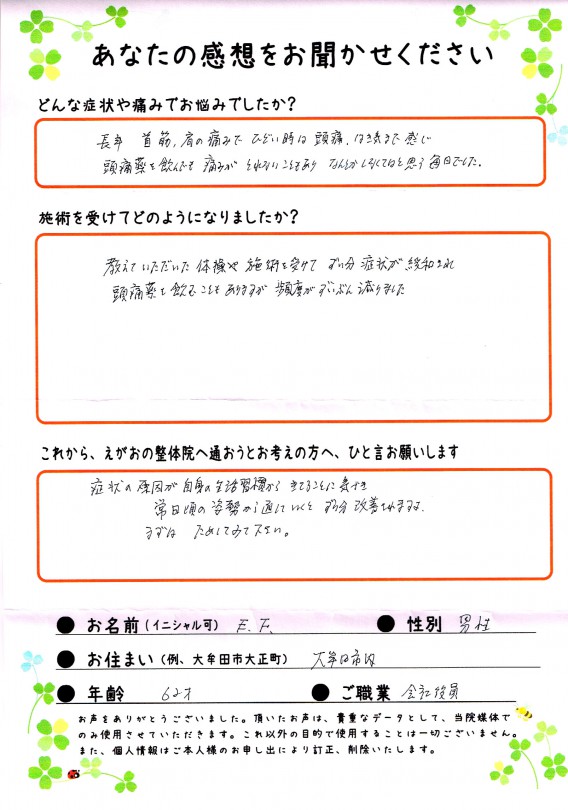 あなたの感想をお聞かせください
どんな症状や痛みでお悩みでしたか?
長年 首筋,肩の痛みで ひどい時は頭痛、はき気まで感じ
頭痛薬を飲んでも 痛みが とれないこともあり なんとかしなくてはと思う毎日でした。
施術を受けてどのようになりましたか?
教えていただいた体操や施術を受けて ずい分 症状が緩和され
頭痛薬を飲むこともありますが 頻度がずいぶん減りました
これから、えがおの整体院へ通おうとお考えの方へ、ひと言お願いします
症状の原因が自身の生活習慣から きてることに気付き
常日頃の姿勢から 直していくと ずい分 改善されます。
まずは ためしてみて下さい。
● お名前(イニシャル可) E.F. ● 性別 男性
● お住まい(例、大牟田市大正町) 大牟田市
● 年齢 62才 ● ご職業 会社役員
お声をありがとうございました。頂いたお声は、貴重なデータとして、当院媒体で
のみ使用させていただきます。これ以外の目的で使用することは一切ございません。
また、個人情報はご本人様のお申し出により訂正、削除いたします。